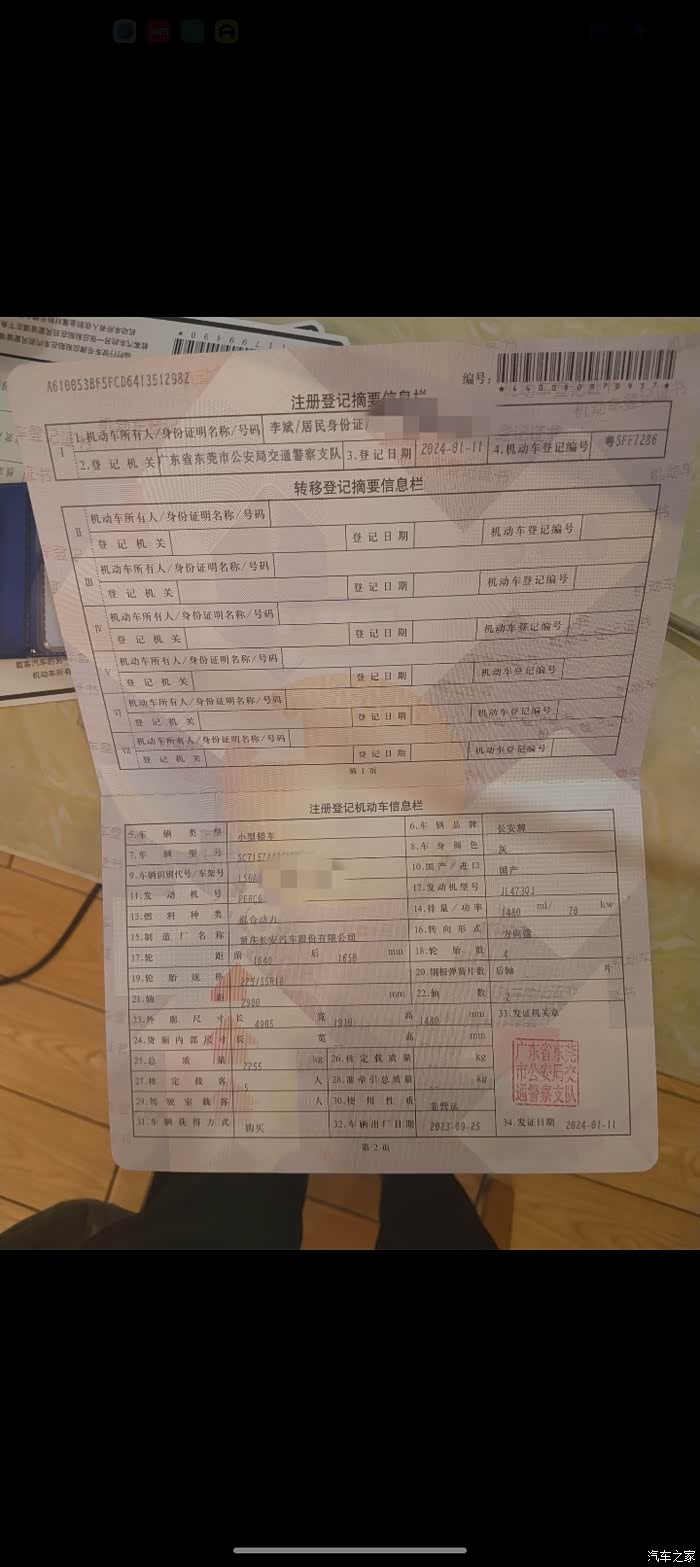 A610053BF5FCD6413512982
编号:
*440060970937*
注册登记摘要信息栏
I 1.机动车所有人/身份证明名称/号码 李斌/居民身份证/
2.登记机关 广东省东莞市公安局交通警察支队 3.登记日期 2024-01-11 4.机动车登记编号 粤SFF7286
转移登记摘要信息栏
II 机动车所有人/身份证明名称/号码
登记机关 登记日期 机动车登记编号
III 机动车所有人/身份证明名称/号码
登记机关 登记日期 机动车登记编号
IV 机动车所有人/身份证明名称/号码
登记机关 登记日期 机动车登记编号
V 机动车所有人/身份证明名称/号码
登记机关 登记日期 机动车登记编号
VI 机动车所有人/身份证明名称/号码
登记机关 登记日期 机动车登记编号
VII 机动车所有人/身份证明名称/号码
登记机关 登记日期 机动车登记编号
第1页
注册登记机动车信息栏
5.车辆类型 小型轿车 6.车辆品牌 长安牌
7.车辆型号 8.车身颜色 灰
9.车辆识别代号/车架号 10.国产/进口 国产
11.发动机号 12.发动机型号 JL473QJ
13.燃料种类 混合动力 14.排量/功率 1480 ml/ 70 kw
15.制造厂名称 重庆长安汽车股份有限公司 16.转向形式 方向盘
17.轮距 前 1640 后 1650 mm 18.轮胎数 4
19.轮胎规格 225/55R18 20.钢板弹簧片数 后轴 片
21.轴距 2900 mm 22.轴数 2
23.外廓尺寸 长 4985 宽 1910 高 1480 mm 33.发证机关章
24.货厢内部尺寸 长 宽 高 mm
25.总质量 2255 kg 26.核定载质量 kg
27.核定载客 5 人 28.准牵引总质量 kg
29.驾驶室载客 人 30.使用性质 非营运
31.车辆获得方式 购买 32.车辆出厂日期 2023-09-25 34.发证日期 2024-01-11
广东省东莞
市公安局交
通警察支队
第2页
汽车之家